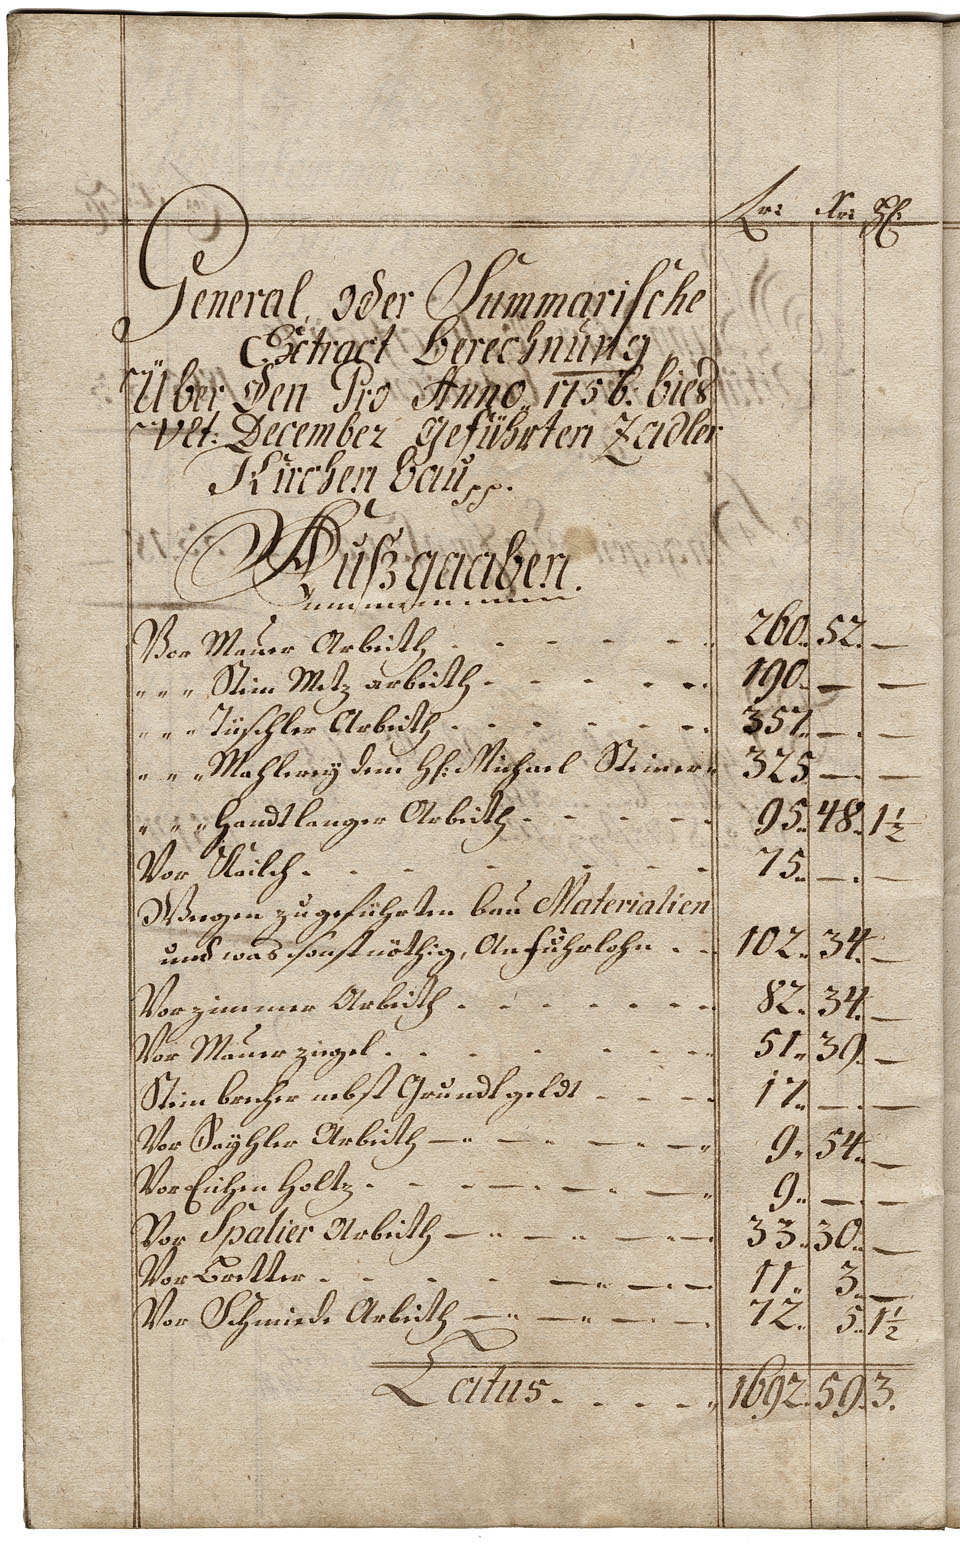 Fr: Xr: Hl:
General, oder Summarische
Extract berechnung
Über den Pro Anno, 1756: bies
Vlt: December geführten Zadler
Kirchen bau pp.
Außgaaben.
Vor Mauer Arbeith 260. 52. —
" " " Stein Metz arbeith 190. — —
" " " Tischler Arbeith 357. — —
" " " Mahlerey dem H: Michael Steiner 325 — —
" " " Handtlanger Arbeith 95. 48. 1½
Vor Kailch 75. — —
Wegen zugeführten bau Materialien
und was sonst nöthig, Anfuhrlohn 102. 34. —
Vor zimmer Arbeith 82. 34. —
Vor Mauer ziegel 51. 39. —
Stein brecher nebst Grundtgeldt 17. — —
Vor Sayhler Arbeith 9. 54. —
Vor Eichen Holtz 9. — —
Vor Spalier Arbeith 33. 30. —
Vor Bretter 11. 3. —
Vor Schmiede Arbeith 72. 5. 1½
Latus 1692. 59. 3.